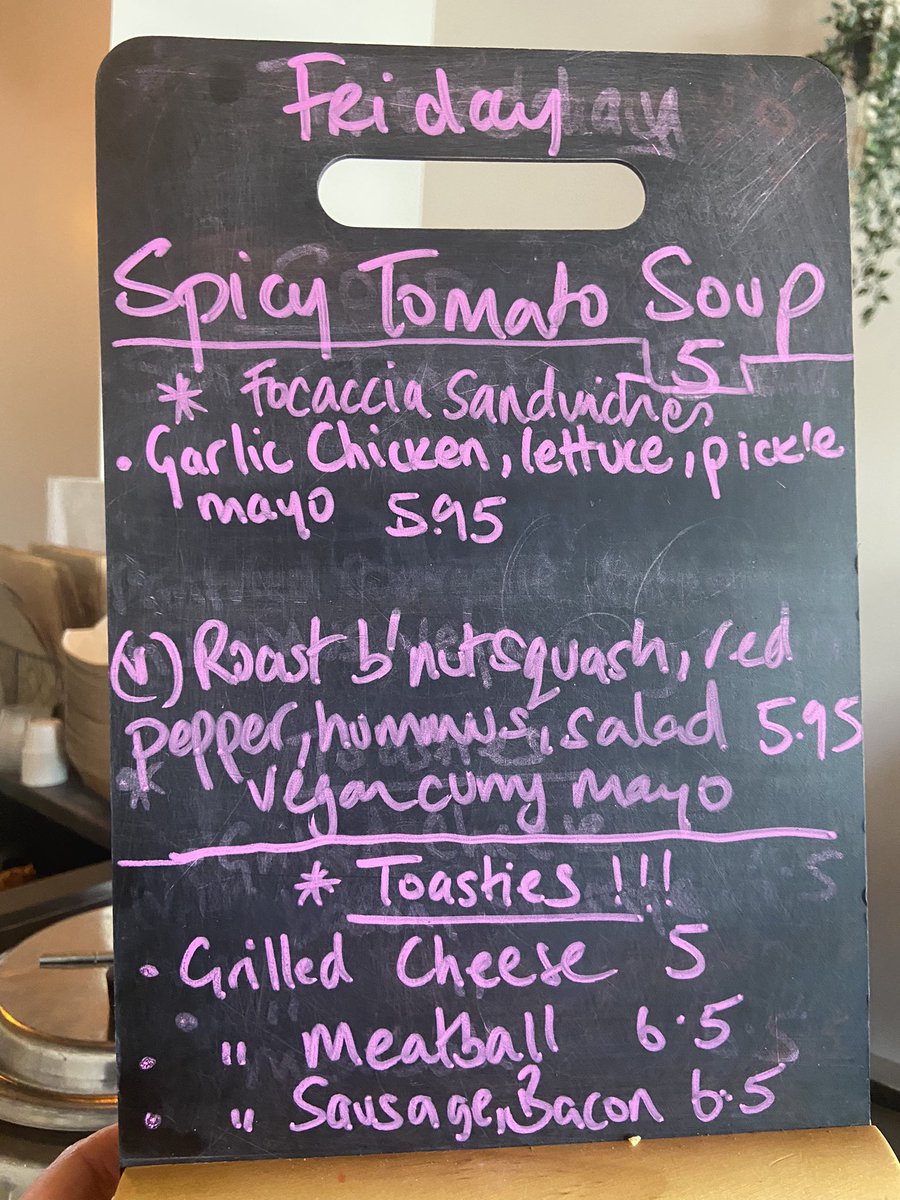 Friday
Spicy Tomato Soup
5
* Focaccia Sandwiches
• Garlic Chicken, lettuce, pickle
mayo 5.95
(v) Roast b'nutsquash, red
pepper, hummus, salad 5.95
* vegan curry mayo
* Toasties !!!
• Grilled Cheese 5
• " Meatball 6.5
• " Sausage, Bacon 6.5